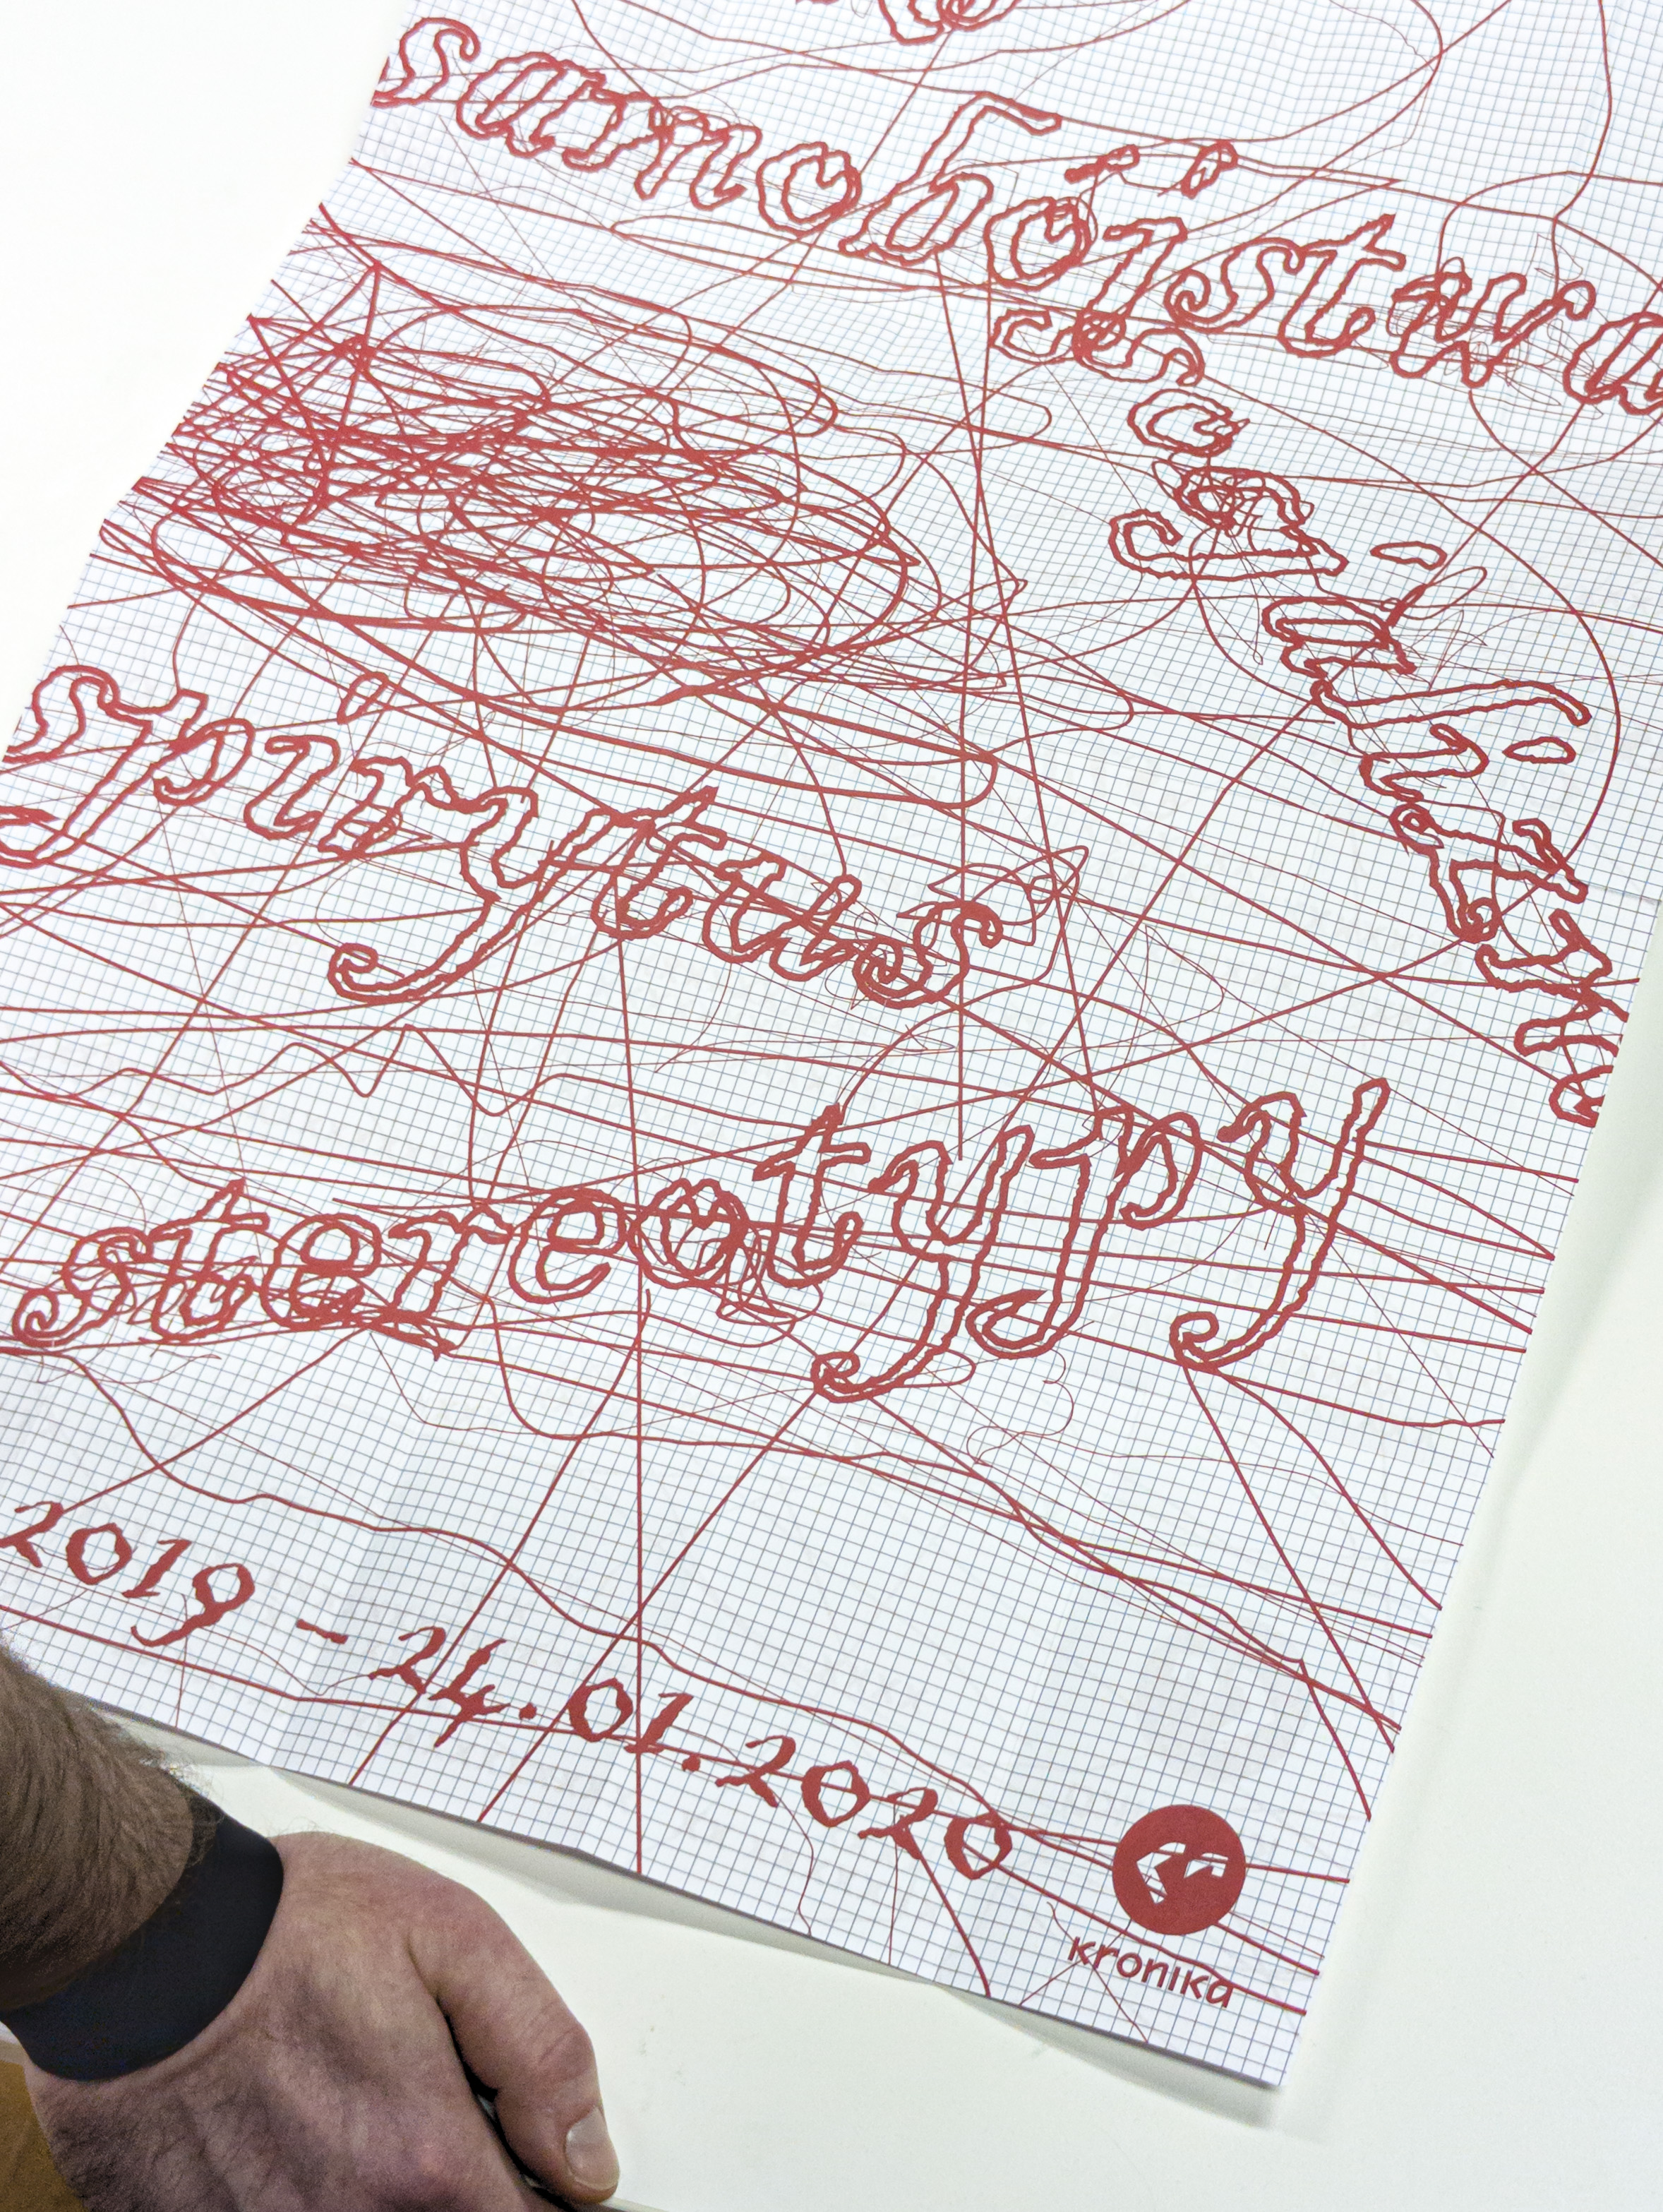 samobójstwa
spirytus
stereotypy
2019 – 24.01.2020
kronika